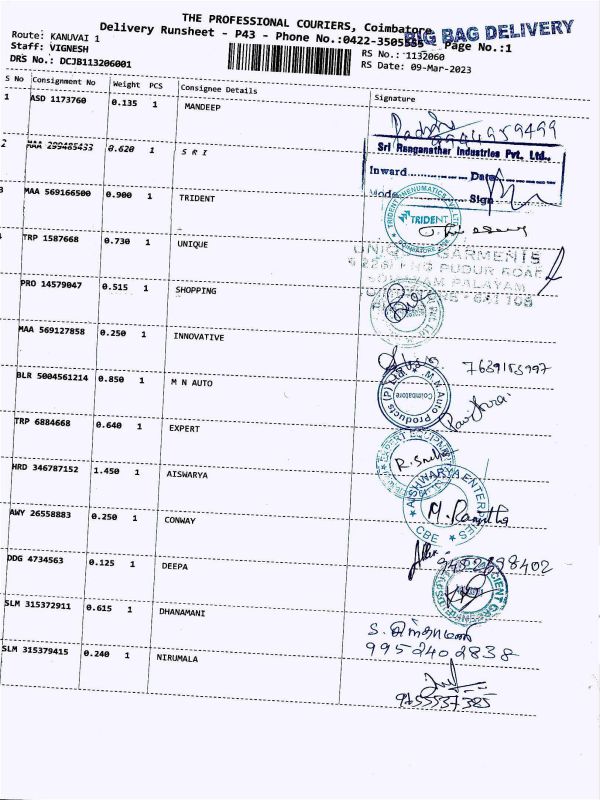 THE PROFESSIONAL COURIERS, Coimbatore
Delivery Runsheet - P43 - Phone No.:0422-3505555 Page No.:1
BIG BAG DELIVERY
Route: KANUVAI 1
Staff: VIGNESH
DRS No.: DCJB113206001
RS No.: 1132060
RS Date: 09-Mar-2023
S No Consignment No Weight PCS Consignee Details Signature
1 ASD 1173760 0.135 1 MANDEEP
2 MAA 299485433 0.620 1 S R I
Sri Ranganathar Industries Pvt. Ltd.,
Inward Date
Sign
3 MAA 569166500 0.900 1 TRIDENT
TRIDENT PNEUMATICS PVT LTD
TRIDENT
COIMBATORE
TRP 1587668 0.730 1 UNIQUE
UNIQUE GARMENTS
PUDUR ROAD
PALAYAM
641108
PRO 14579047 0.515 1 SHOPPING
MAA 569127858 0.250 1 INNOVATIVE
BLR 5004561214 0.850 1 M N AUTO
M.N Auto Products (P) Ltd
Coimbatore
TRP 6884668 0.640 1 EXPERT
EXPERT EQUIPMENT
HRD 346787152 1.450 1 AISWARYA
AISHWARYA ENTERPRISES
CBE
M. Ranjitha
AWY 26558883 0.250 1 CONWAY
DDG 4734563 0.125 1 DEEPA
SLM 315372911 0.615 1 DHANAMANI
9952402838
SLM 315379415 0.240 1 NIRUMALA